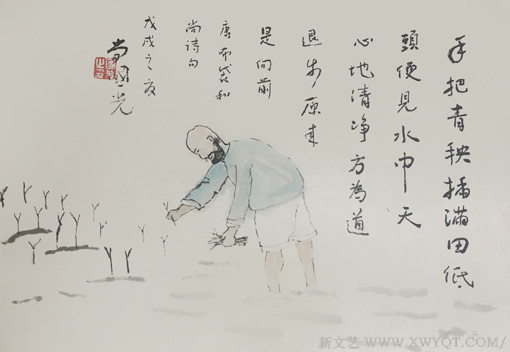 手把青秧插滿田低
頭便見水中天
心地清净方為道
退步原来
是向前
唐布袋和
尚诗句
戊戌之
光
新文艺 WWW.XWYQT.COM/